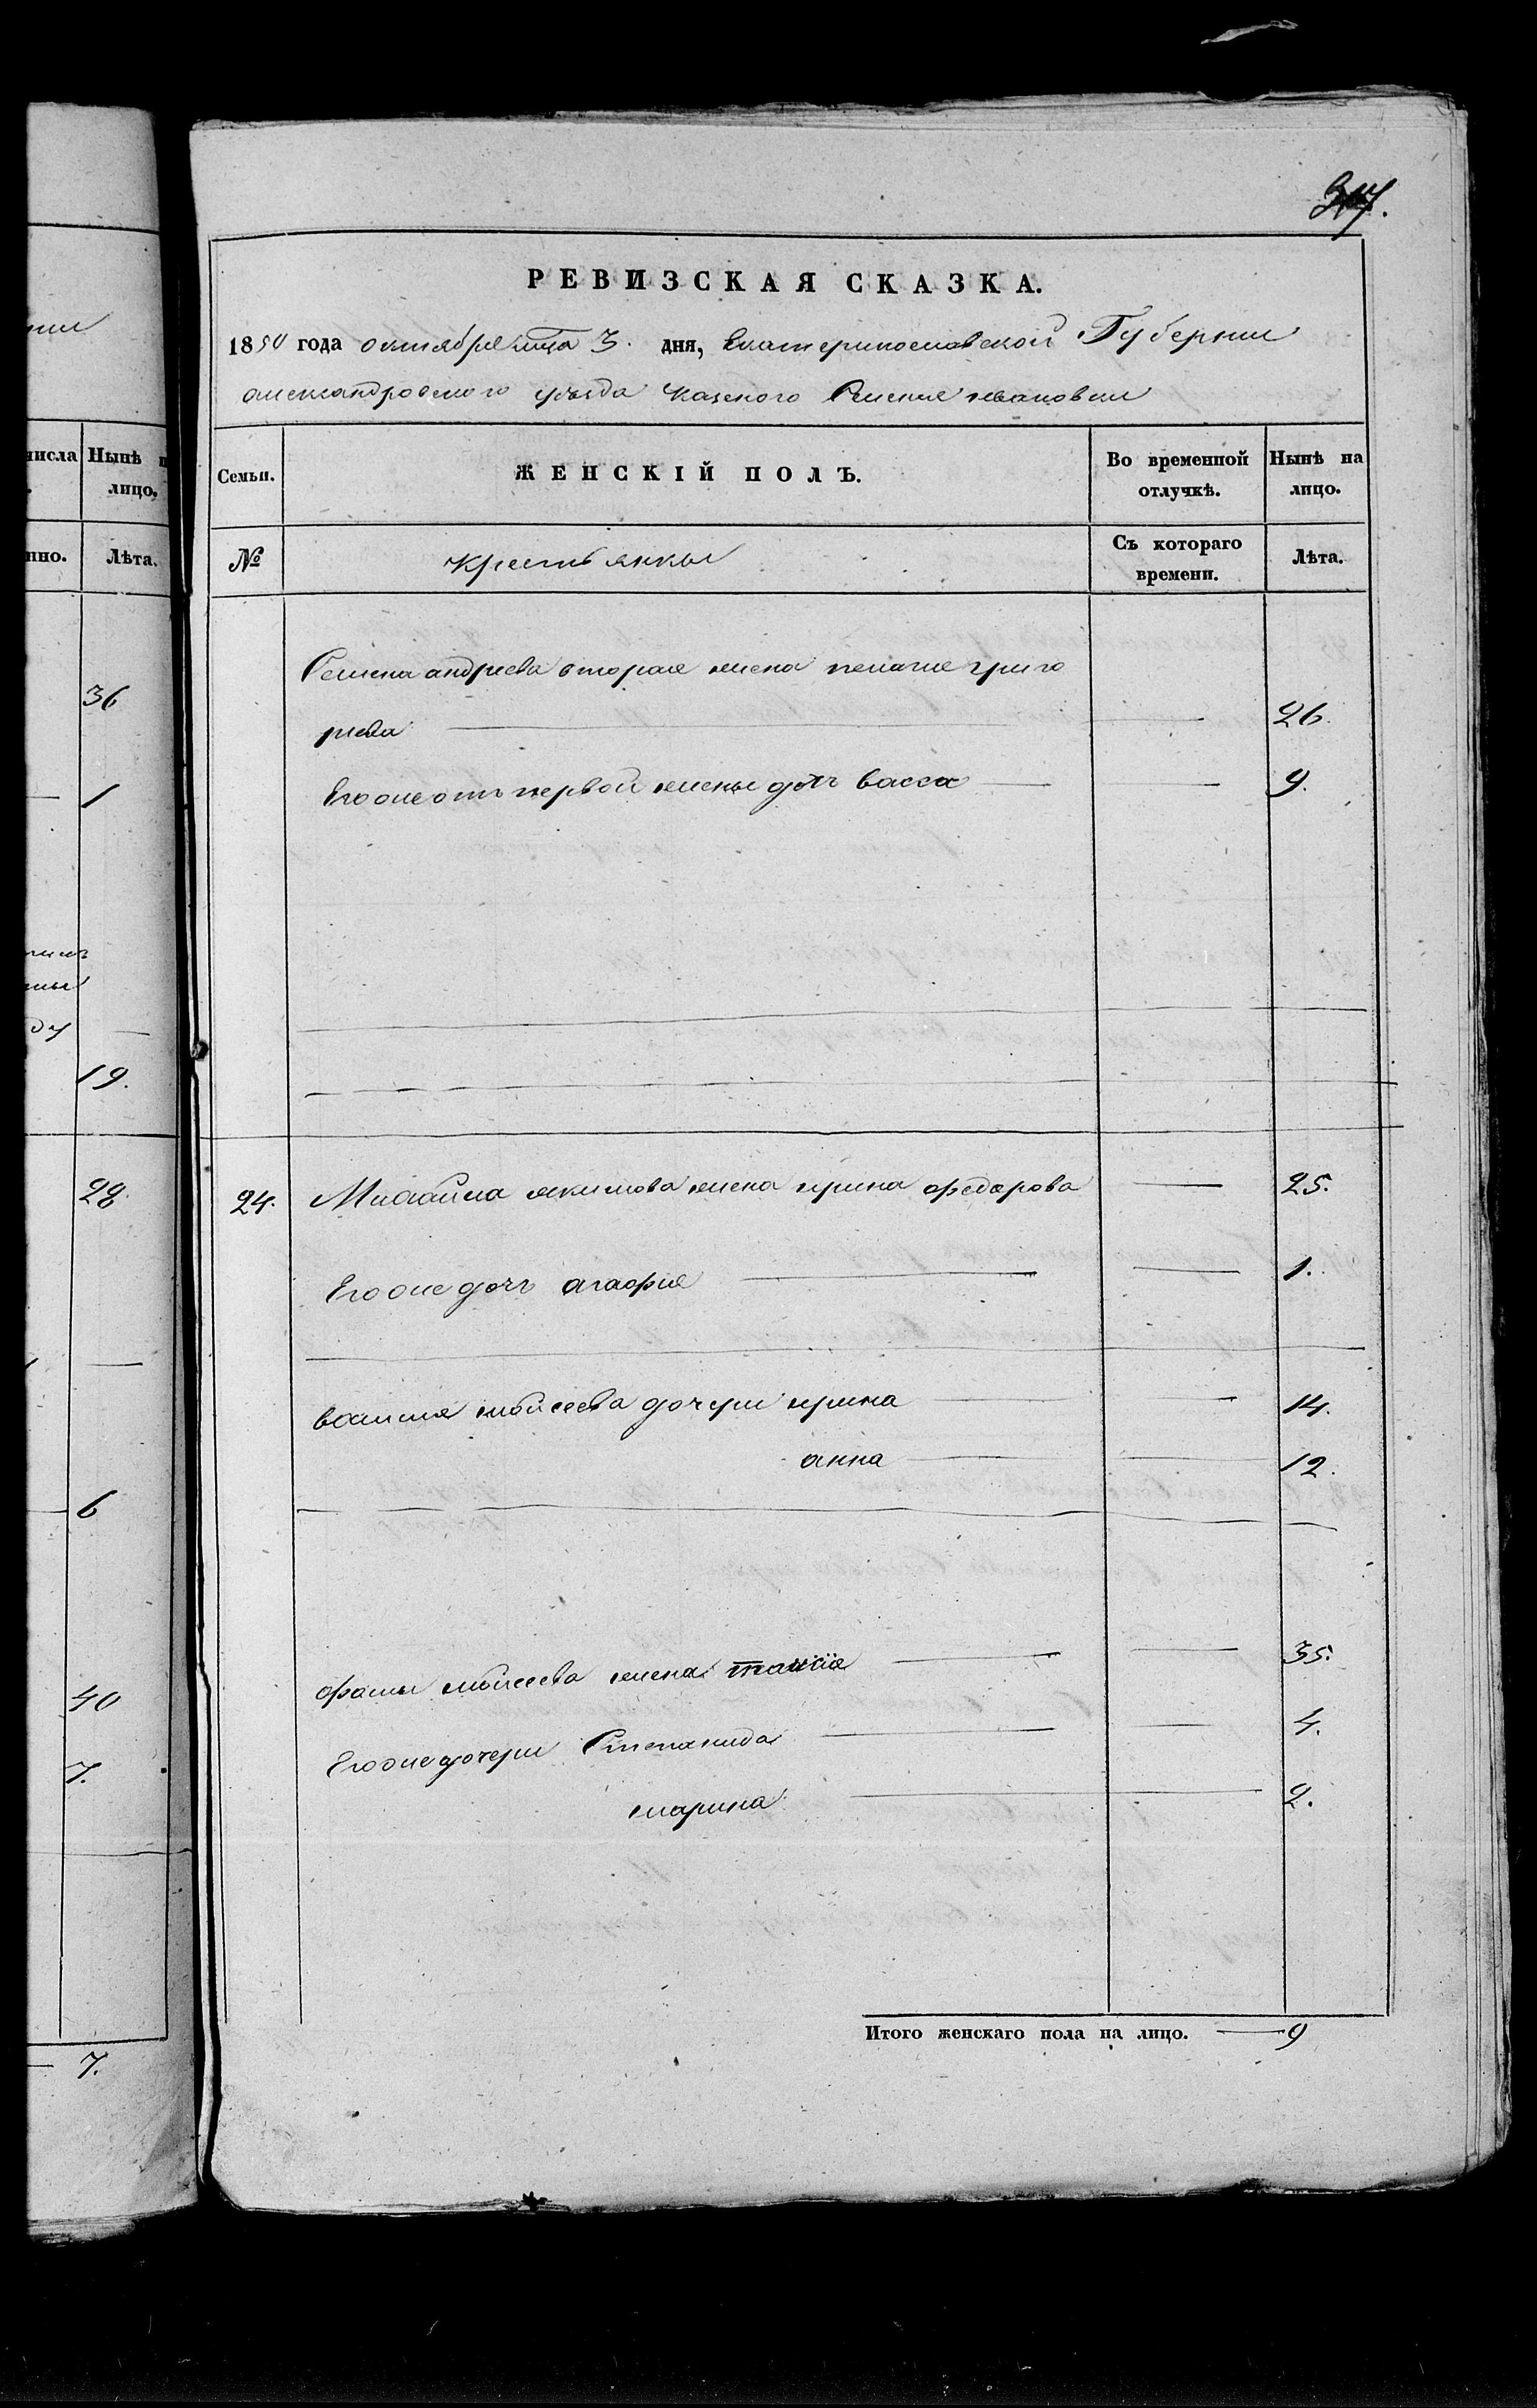 РЕВИЗСКАЯ СКАЗКА.
1850 года октября мца 3. дня, Екатеринославской Губернии
александровского уѣзда казеного Селения ивановки
Семьи.
ЖЕНСКІЙ ПОЛЪ.
Во временной отлучкѣ.
Нынѣ на лицо.
№
крестьянки
Съ котораго времени.
Лѣта.
Семена андреева вторая жена пелагия григо
риева 26.
Его же отъ первой жены дочь васса 9.
24. Михайла якимова жена ирина федорова 25.
Его же дочь агафия 1.
мойсеева дочери ирина 14.
анна 12.
фомы мойсеева жена таисия 35.
Его же дочери Степанида 4.
марина 2.
Итого женскаго пола на лицо. 9
числа
Нынѣ
лицо.
Лѣта.
36
1
19.
28.
6
40
7.
7.